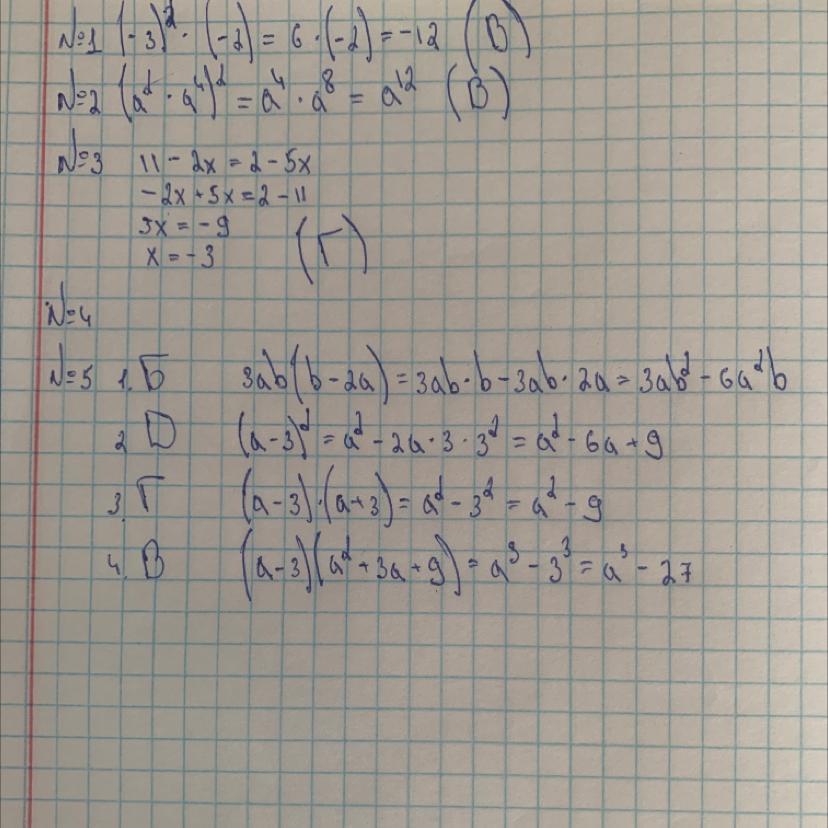 №1 (-3)² · (-2) = 6 · (-2) = -12 (В)
№2 (a² · a⁴)² = a⁴ · a⁸ = a¹² (В)
№3 11 - 2x = 2 - 5x
-2x + 5x = 2 - 11
3x = -9
x = -3 (Г)
№4
№5 1. Б 3ab(b - 2a) = 3ab · b - 3ab · 2a = 3ab² - 6a²b
2 D (a - 3)² = a² - 2a · 3 · 3² = a² - 6a + 9
3. Г (a - 3) · (a + 3) = a² - 3² = a² - 9
4. В (a - 3)(a² + 3a + 9) = a³ - 3³ = a³ - 27